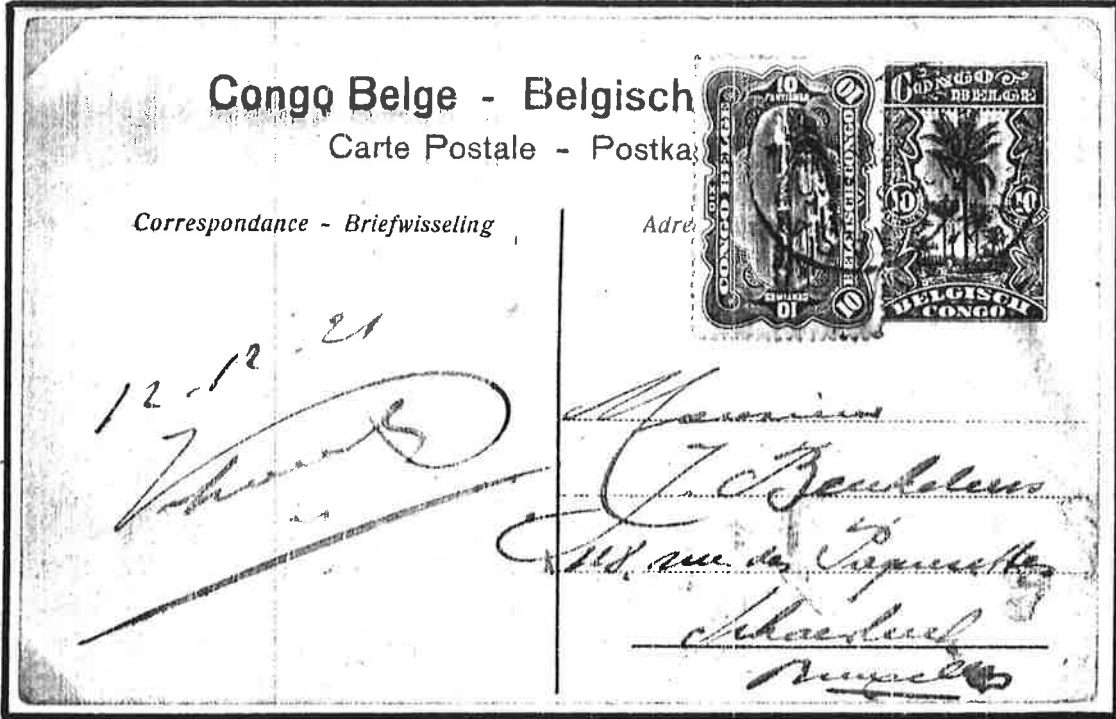 Congo Belge - Belgisch
Carte Postale - Postka
Correspondance - Briefwisseling
Adre
10
CENTIMES
10
CONGO BELGE
10
CENTIMES
10
CONGO
BELGE
10
10
BELGISCH
CONGO
12-12-21
Monsieur
J.
118, rue des Paquerettes
Schaerbeek
Bruxelles